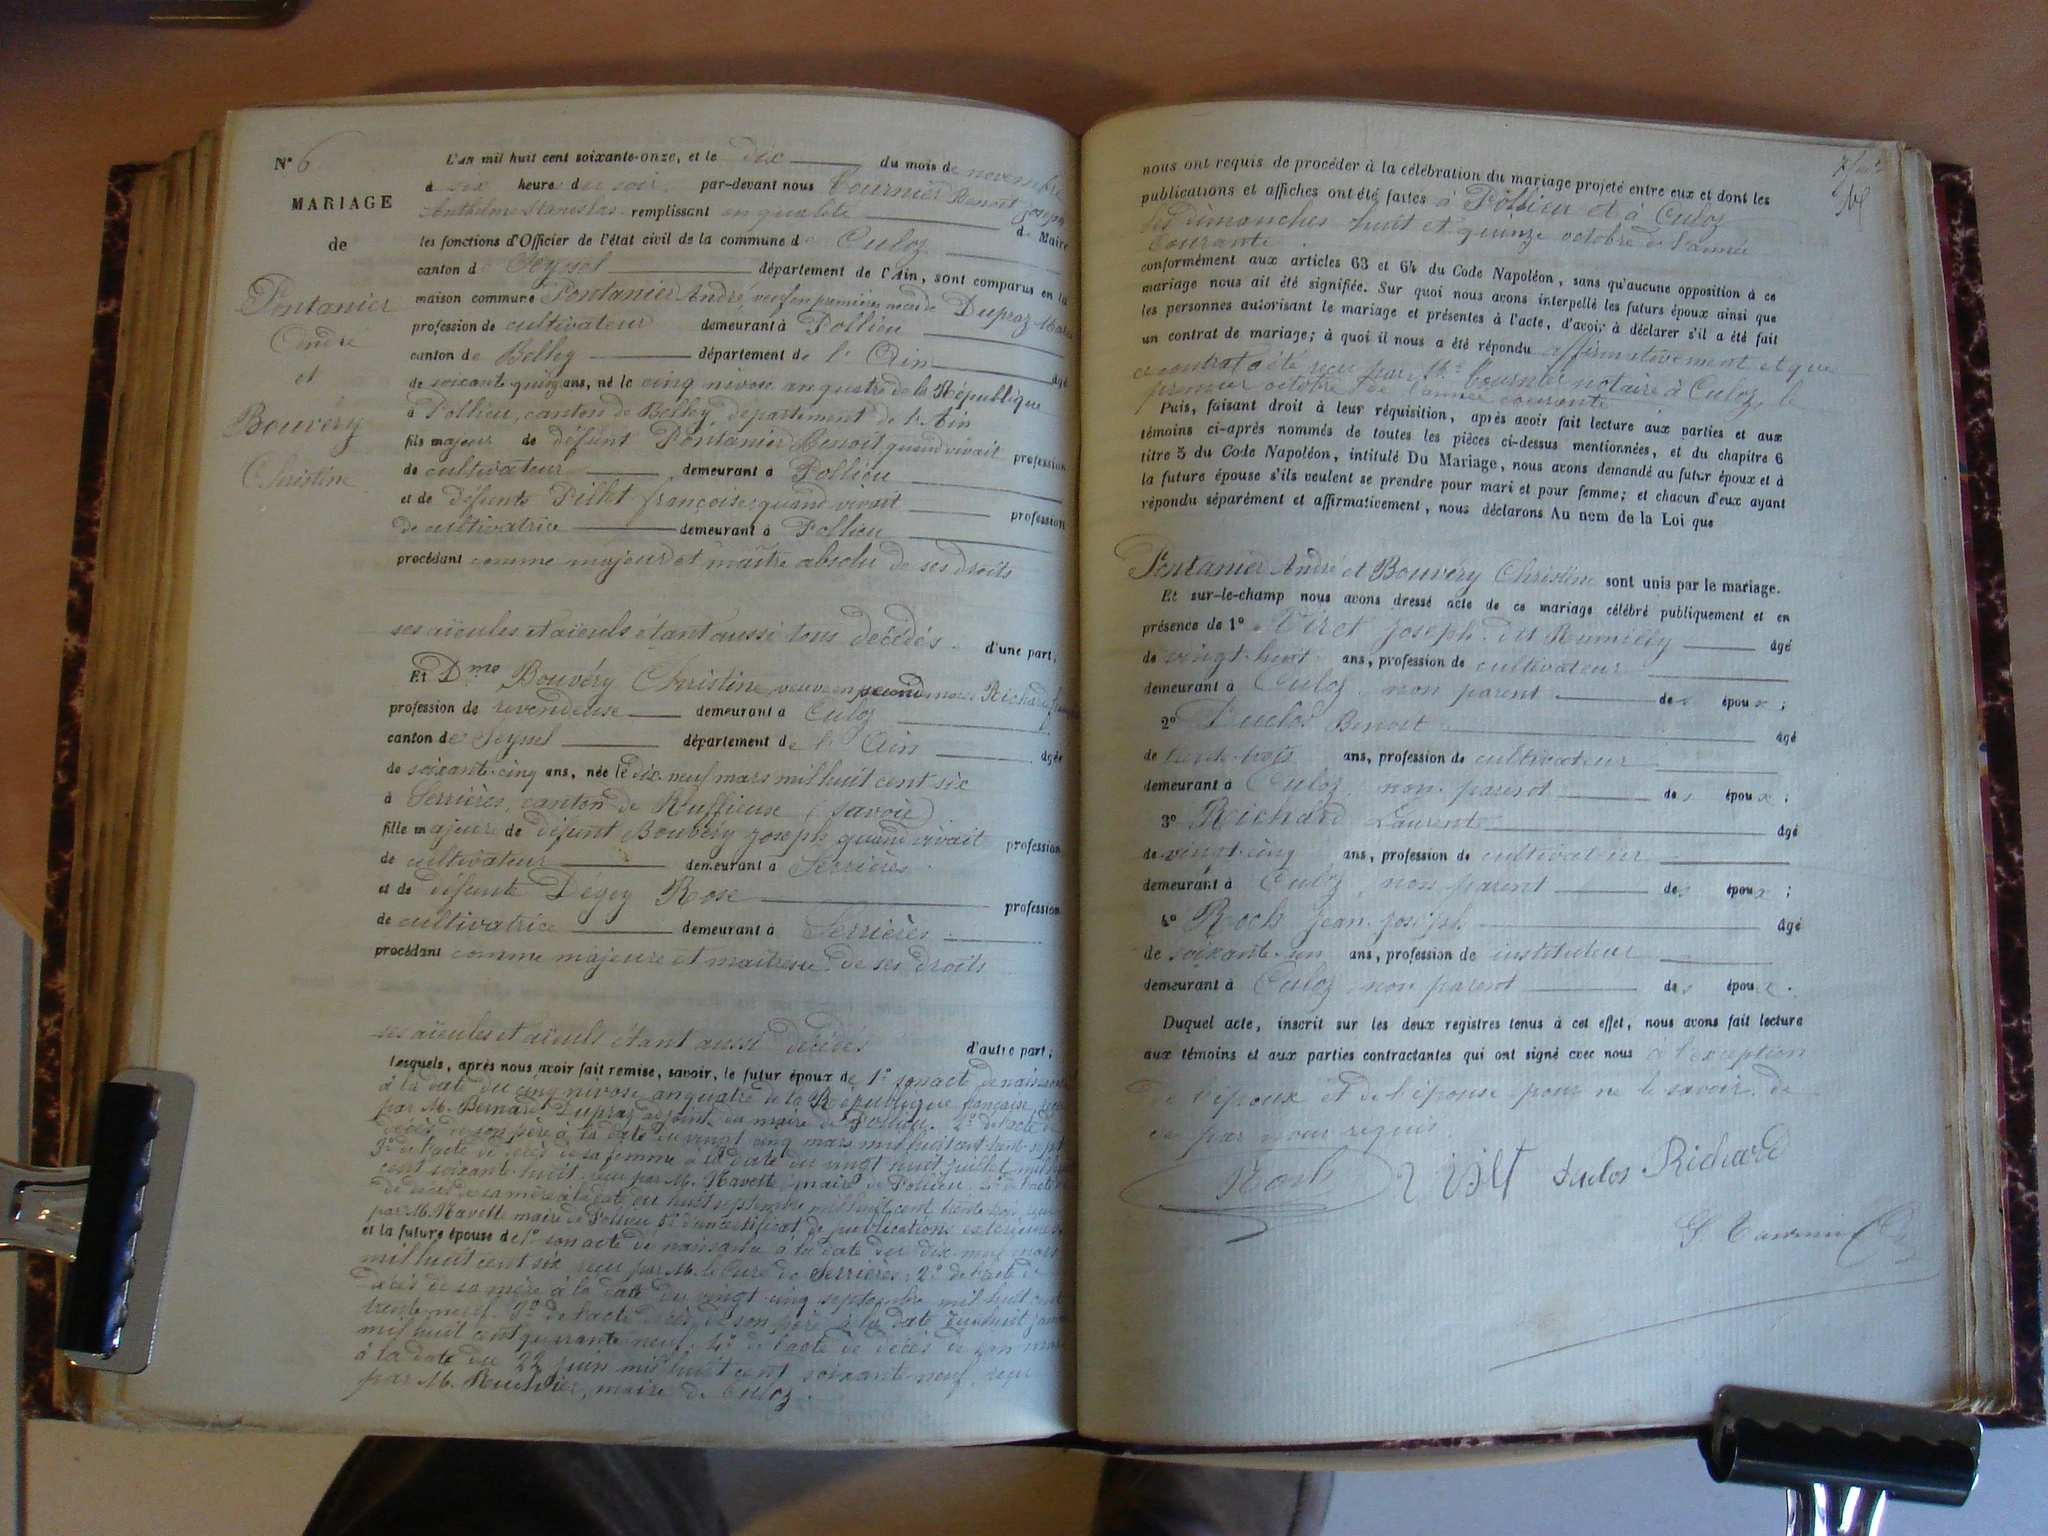 N° 6
MARIAGE
de
Pontanier
André
et
Bouvéry
Christine
L'an mil huit cent soixante-onze, et le dix du mois de novembre
à six heure du soir par-devant nous Tournier Benoit Joseph
Anthelme Stanislas remplissant en qualité de Maire
les fonctions d'Officier de l'état civil de la commune de Culoz
canton de Seyssel département de l'Ain, sont comparus en la
maison commune Pontanier André, veuf en premières noces de Dupraz Marie
profession de cultivateur demeurant à Pollieu
canton de Belley département de l'Ain âgé
de soixante quinze ans, né le cinq nivose an quatre de la République
à Pollieu, canton de Belley département de l'Ain
fils majeur de défunt Pontanier Benoit quand vivait profession
de cultivateur demeurant à Pollieu
et de défunte Pillet françoise quand vivait profession
de cultivatrice demeurant à Pollieu
procédant comme majeur et maître absolu de ses droits
ses aïeules et aïeuls étant aussi tous décédés d'une part;
Et Dme Bouvéry Christine, veuve en second Richard
profession de revendeuse demeurant à Culoz
canton de Seyssel département de l'Ain âgée
de soixante-cinq ans, née le dix-neuf mars mil huit cent six
à Serrières, canton de Ruffieux (Savoie)
fille majeure de défunt Bouvéry Joseph quand vivait profession
de cultivateur demeurant à Serrières
et de défunte Dégey Rose profession
de cultivatrice demeurant à Serrières
procédant comme majeure et maitresse de ses droits
ses aïeules et aïeuls étant aussi décédés d'autre part;
Lesquels, après nous avoir fait remise, savoir, le futur époux de 1° son acte de naissance
à la date du cinq nivose an quatre de la République française, reçu
par M. Bernard Dupraz adjoint du maire de Pollieu. 2° de l'acte de
décès de son père à la date du vingt cinq mars mil huit cent
3° de l'acte de décès de sa femme à la date du vingt huit juillet mil huit
cent soixante huit, reçu par M. Navette maire de Pollieu, 4° de l'acte
de décès de sa mère à la date du huit septembre mil huit cent trente trois
par M. Navette maire de Pollieu 5° d'un certificat de publications
et la future épouse de 1° son acte de naissance à la date du dix-neuf mars
mil huit cent six reçu par M. le Curé de Serrières, 2° de l'acte de
décès de sa mère à la date du vingt-cinq septembre mil huit cent
trente-neuf. 3° de l'acte de décès de son père à la date du huit
mil huit cent quarante-neuf. 4° de l'acte de décès de son mari
à la date du 22 juin mil huit cent soixante-neuf, reçu
par M. maire de Culoz.
nous ont requis de procéder à la célébration du mariage projeté entre eux et dont les
publications et affiches ont été faites à Pollieu et à Culoz
les dimanches huit et quinze octobre de l'année
courante
conformément aux articles 63 et 64 du Code Napoléon, sans qu'aucune opposition à ce
mariage nous ait été signifiée. Sur quoi nous avons interpellé les futurs époux ainsi que
les personnes autorisant le mariage et présentes à l'acte, d'avoir à déclarer s'il a été fait
un contrat de mariage; à quoi il nous a été répondu affirmativement et que
ce contrat a été reçu par Me Tournier notaire à Culoz, le
premier octobre de l'année courante
Puis, faisant droit à leur réquisition, après avoir fait lecture aux parties et aux
témoins ci-après nommés de toutes les pièces ci-dessus mentionnées, et du chapitre 6
titre 5 du Code Napoléon, intitulé Du Mariage, nous avons demandé au futur époux et à
la future épouse s'ils veulent se prendre pour mari et pour femme; et chacun d'eux ayant
répondu séparément et affirmativement, nous déclarons Au nom de la Loi que
Pontanier André et Bouvéry Christine sont unis par le mariage.
Et sur-le-champ nous avons dressé acte de ce mariage célébré publiquement et en
présence de 1° Viret Joseph dit Rumilly âgé
de vingt-huit ans, profession de cultivateur
demeurant à Culoz, non parent des époux;
2° Duclos Benoit âgé
de trente-trois ans, profession de cultivateur
demeurant à Culoz, non parent des époux;
3° Richard Laurent âgé
de vingt-cinq ans, profession de cultivateur
demeurant à Culoz, non parent des époux;
4° Roch Jean-Joseph âgé
de soixante-un ans, profession de instituteur
demeurant à Culoz non parent des époux.
Duquel acte, inscrit sur les deux registres tenus à cet effet, nous avons fait lecture
aux témoins et aux parties contractantes qui ont signé avec nous à l'exception
de l'époux et de l'épouse pour ne le savoir de
ce par nous requis.
Roch Viret Duclos Richard
S. Tournier